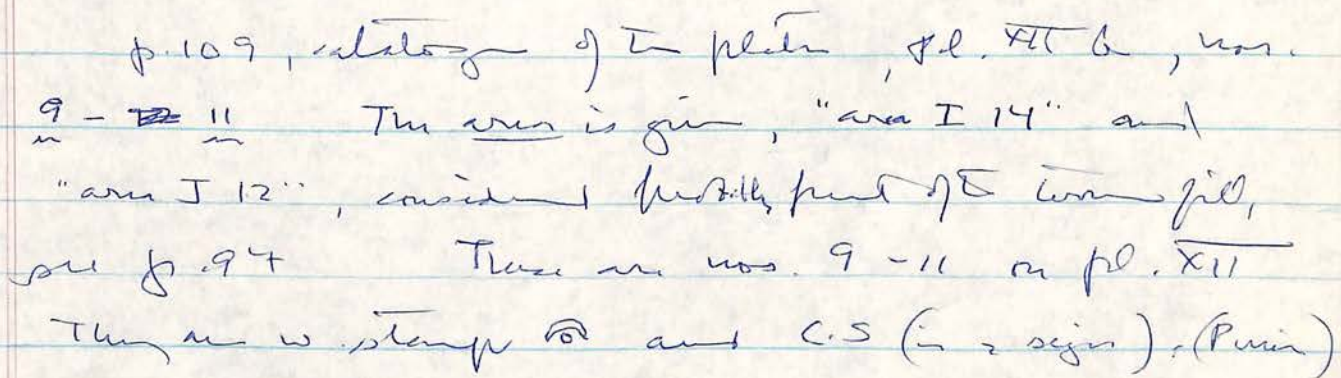 p. 109, catalogue of the plates, pl. XII b, nos.
9 - 11 The area is given, "area I 14" and
"area J 12", considered probably part of the townfill,
see p. 94 These are nos. 9 - 11 on pl. XII
They are w. stamp and C.S (in 2 signs). (Punic)